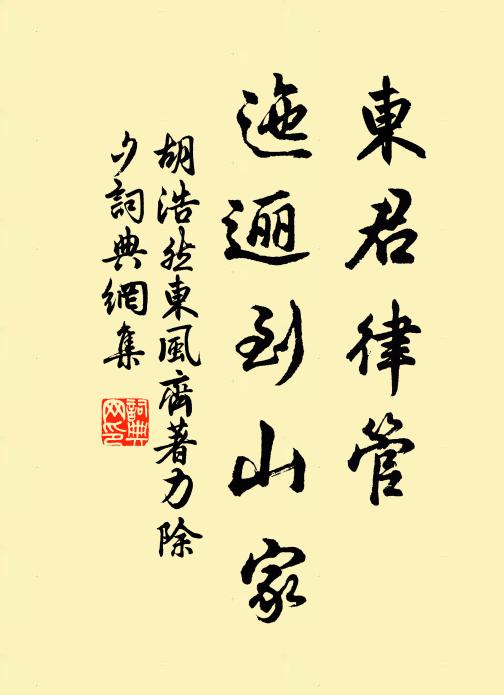 東君律管
迤邐到山家
胡浩然東風齊著力除
夕詞典網集
詞典網印